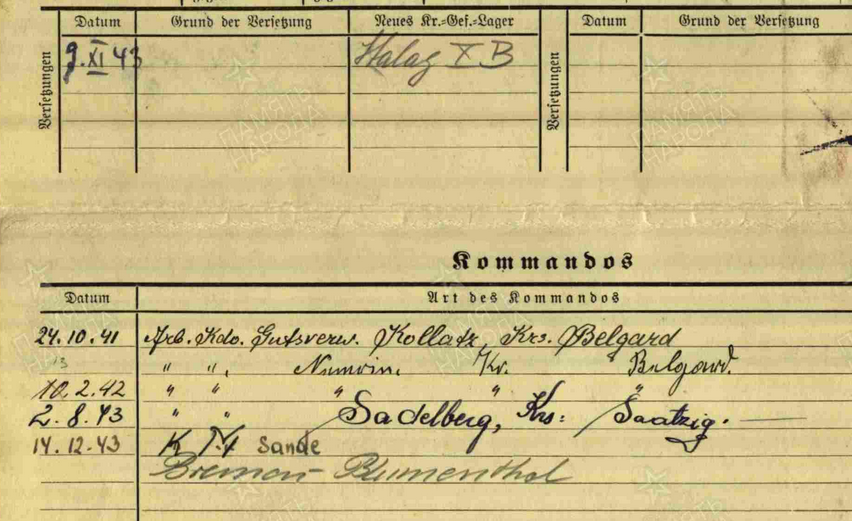 Datum Grund der Versetzung Neues Kr.=Gef.=Lager Datum Grund der Versetzung
Versetzungen
9.XI 43 Stalag X B
Versetzungen
ПАМЯТЬ НАРОДА
Kommandos
Datum Art des Kommandos
24.10.41 Arb. Kdo. Gutsverw. Kollatz, Krs. Belgard
" ", Kr. Belgard.
10.2.42 " " " " "
2.8.43 " " Sadelberg, Krs: Saatzig.
14.12.43 Sande
Bremen-Blumenthal